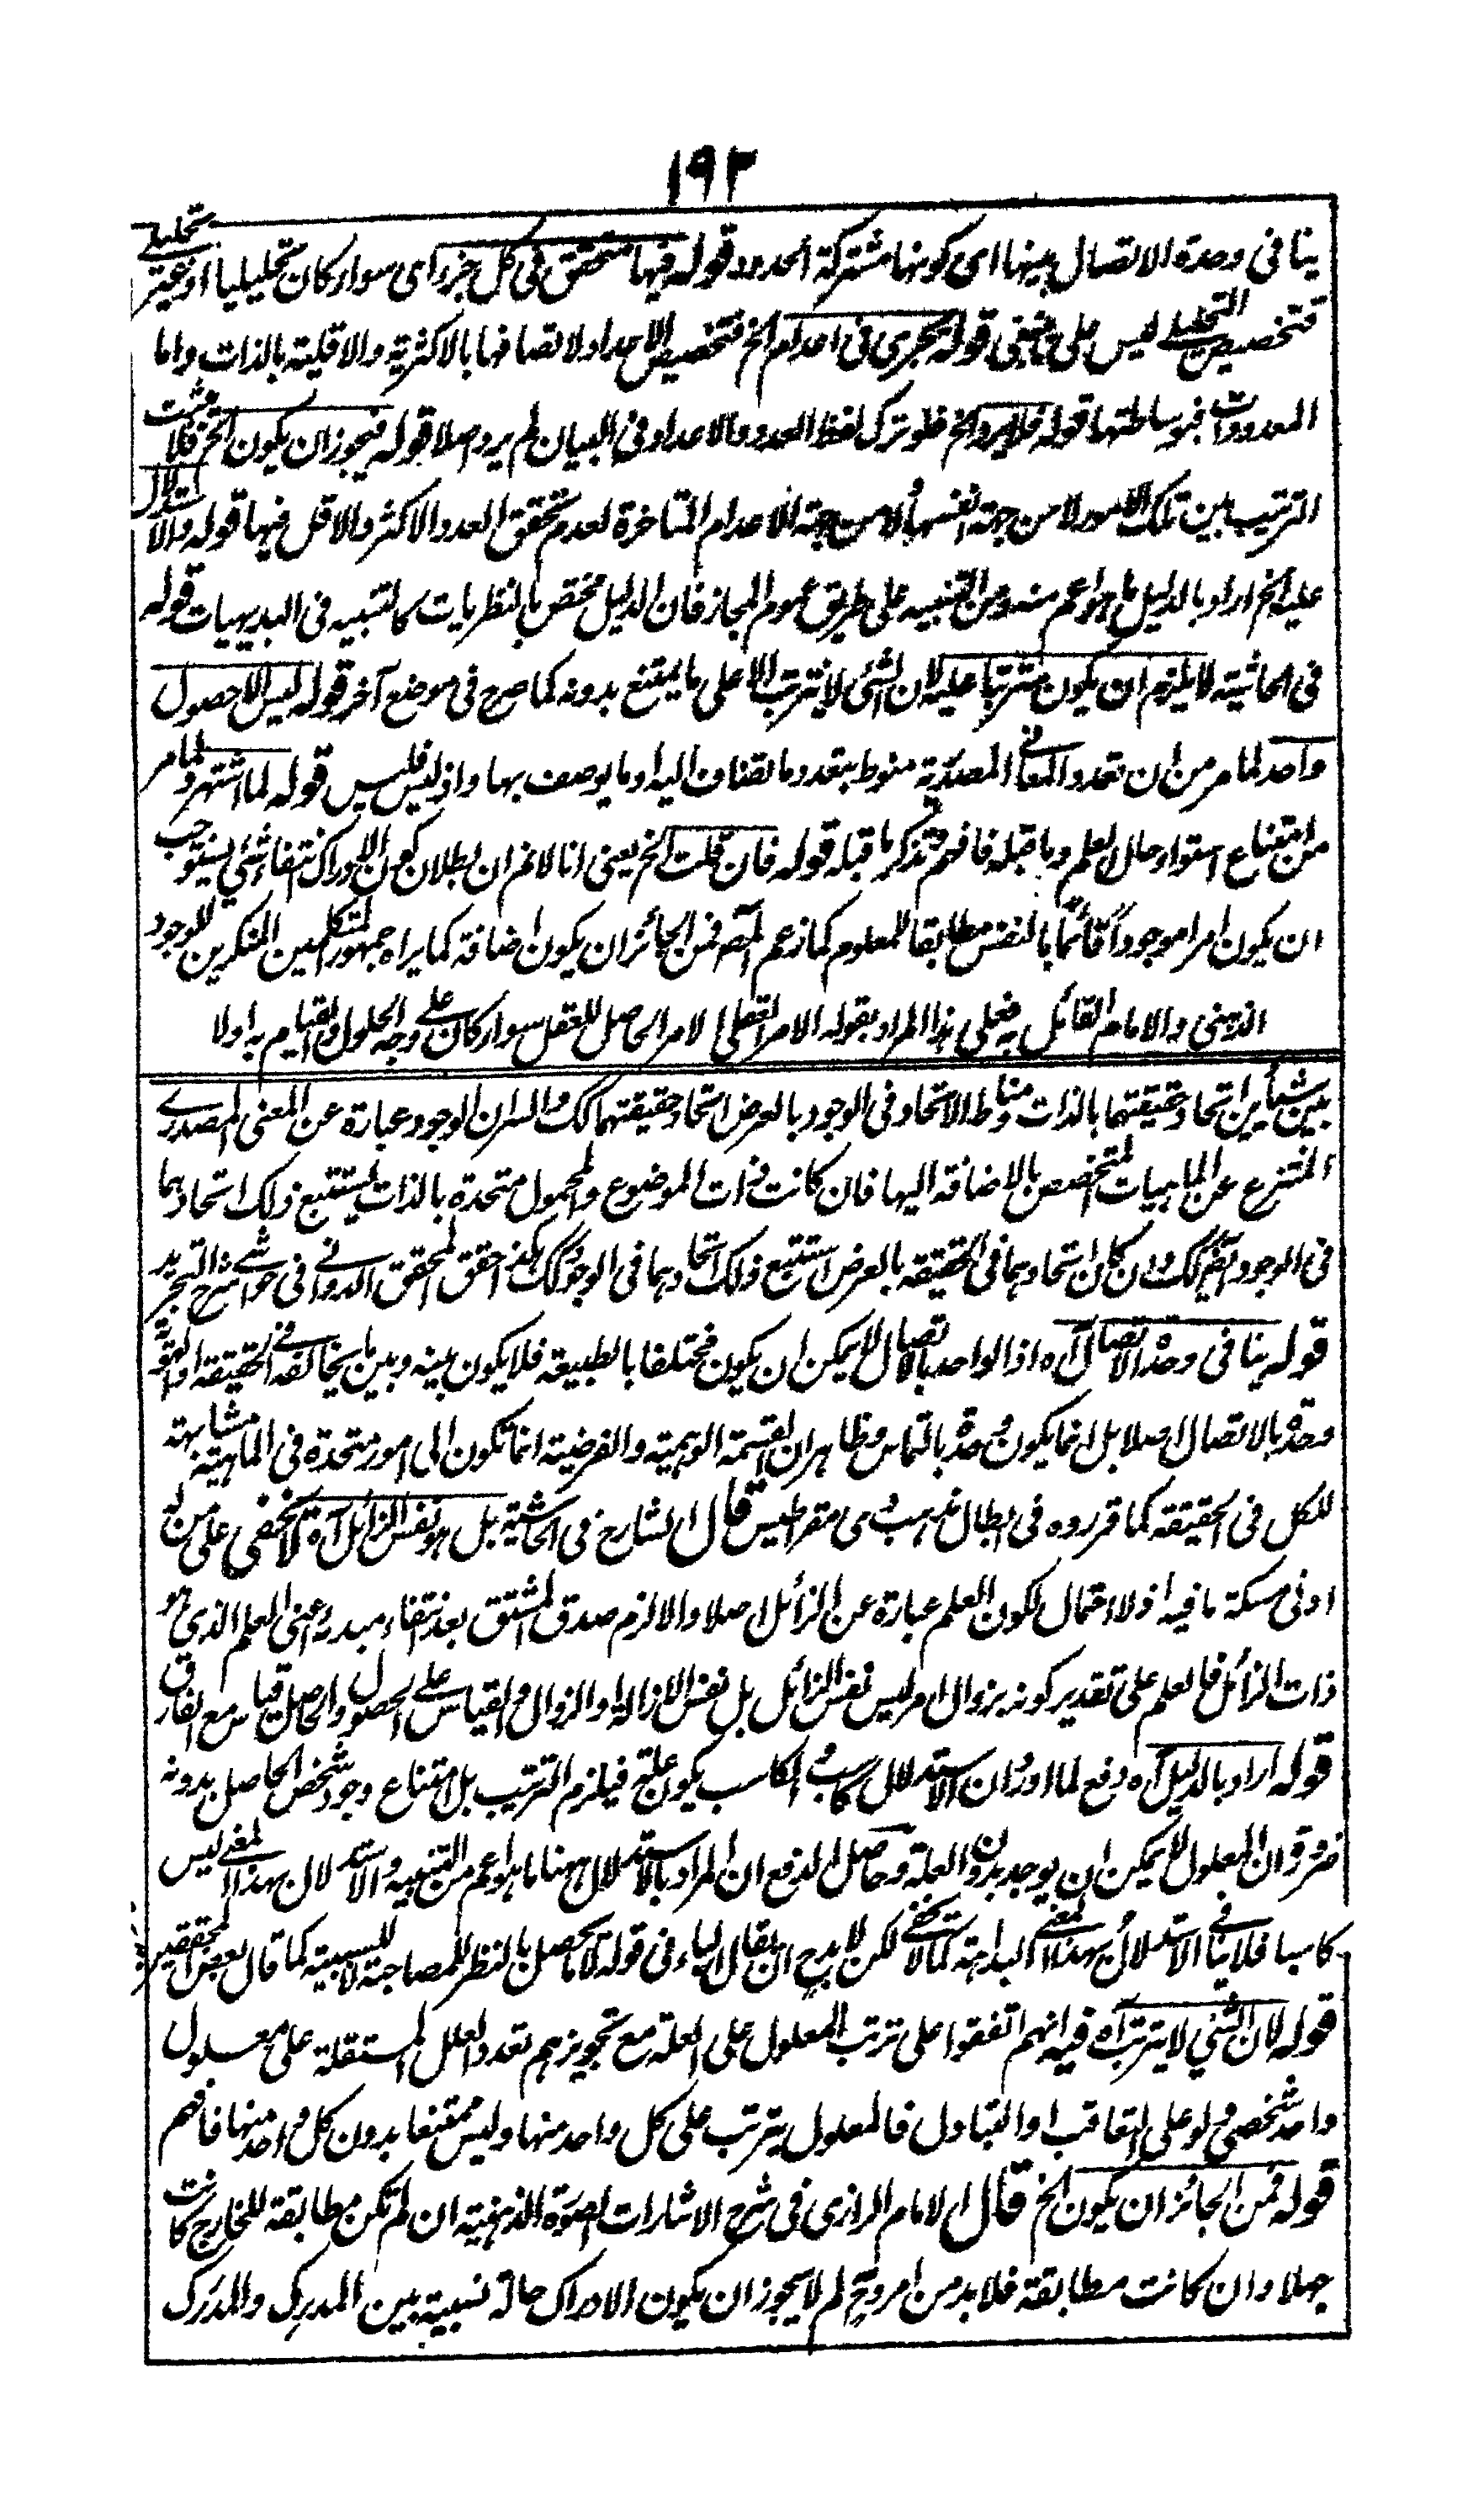 ١٩٣
ينافى وحدة الاتصال بينها اى كونها مشتركة الحدود قوله فيها متحقق فى كل جزء اى سواء كان تحليليا او غير تحليلے
فتخصيص التحليلے ليس على ما ينبغى قوله يجرى فى اعدام الخ فتخصيص الاعداد لاتصافها بالاكثرية والاقلية بالذات واما
المعدودات فبوساطتها قوله فلا يرد الخ فلو ترك لفظ العدد والاعداد فى البيان لم يرد اصلا قوله فيجوز ان يكون الخ فلا يثبت
الترتيب بين تلك الامور لا من جهة انفسها ولا من جهة الاعدام المتاخرة لعدم تحقق العدد الاكثر والاقل فيها قوله والاستدلال
عليه الخ اراد بالدليل ما هو اعم منه ومن التنبيه على طريق عموم المجاز فان الدليل مختص بالنظريات كالتنبيه فى البديهيات قوله
فى الحاشية لا يلزم ان يكون مترتبا عليه لان الشئ لا يترتب الا على ما يمتنع بدونه كما صرح فى موضع آخر قوله ليس الا حصول
واحد لما مر من ان تعدد المعانى المصدرية منوط بتعدد ما تضاف اليه او ما يوصف بها واذ ليس فليس قوله لما اشتهر ولما مر
من امتناع استواء حال العلم وما قبله فافهم وتذكر ما قبله قوله فان قلت الخ يعنى انا لا نم ان بطلان كون الادراك انتفاء شئ يستوجب
ان يكون امرا موجوداً قائماً بالنفس مطابقا للمعلوم كما زعم المصـ فمن الجائز ان يكون اضافة كما يراه جمهور المتكلمين المنكرين للوجود
الذهنى والامام القائل به فعلى هذا المراد بقوله الامر العقلى الامر الحاصل للعقل سواء كان علے وجه الحلول والقيام به اولا
بين شيئين اتحاد حقيقتهما بالذات ومناط الاتحاد فى الوجود بالعرض اتحاد حقيقتهما كك والسر ان الوجود عبارة عن المعنى المصدرے
المنتزع عن الماهيات المتخصص بالاضافة اليها فان كانت ذات الموضوع والمحمول متحدة بالذات يستتبع ذلك اتحادهما
فى الوجود ايضا كك وان كان اتحادهما فى الحقيقة بالعرض استتبع ذلك اتحادهما فى الوجود كك هكذا حقق المحقق الدوانى فى حواشے شرح التجريد
قوله ينافى وحدة الاتصال آه اذ الواحد بالاتصال لا يمكن ان يكون مختلفا بالطبيعة فلا يكون بينه وبين ما يخالفه فى الحقيقة
وحدة بالاتصال اصلا بل انما يكون وحدة بالتماس وظاهر ان القسمة الوهمية والفرضية انما تكون الى امور متحدة فى الماهية مشابهة
للكل فى الحقيقة كما قرروه فى ابطال مذهب ذى مقراطيس قال الشارح فى الحاشية بل هو نفس الزائل آه لا يخفى على من له
ادنى مسكة ما فيه اذ لا احتمال لكون العلم عبارة عن الزائل اصلا والا لزم صدق المشتق بعد انتفاء مبدءه اعنى العلم الذى هو
ذات الزائل فالعلم على تقدير كونه بزوال امر ليس نفس الزائل بل نفس الازالة او الزوال والقياس علے الحصول والحاصل قياس مع الفارق
قوله اراد بالدليل آه دفع لما اورد ان الاستدلال كاسب والكاسب يكون علة فيلزم الترتيب بل امتناع وجود شخص الحاصل بدونه
ضرورة ان المعلول لا يمكن ان يوجد بدون العلة وحاصل الدفع ان المراد بالاستدلال ههنا ما هو اعم من التنبيه والاستدلال بهذا المعنے ليس
كاسبا فلا ينافى الاستدلال بهذا المعنے البداهة كما لا يخفے لكن لا بد ح ان يقال الباء فى قوله لا يحصل بالنظر للمصاحبة لا للسببية كما قال بعض المحققين
قوله لان الشئ لا يترتب آه فيه انهم اتفقوا على ترتب المعلول على العلة مع تجويزهم تعدد العلل المستقلة على معلول
واحد شخصى ولو على التعاقب او التبادل فالمعلول يترتب على كل واحد منها وليس ممتنعا بدون كل واحد منها فافهم
قوله فمن الجائز ان يكون الخ قال الامام الرازى فى شرح الاشارات الصورة الذهنية ان لم تكن مطابقة للخارج كانت
جهلا وان كانت مطابقة فلا بد من امر وح لم لا يجوز ان يكون الادراك حالة نسبية بين المدرِك والمدرَك